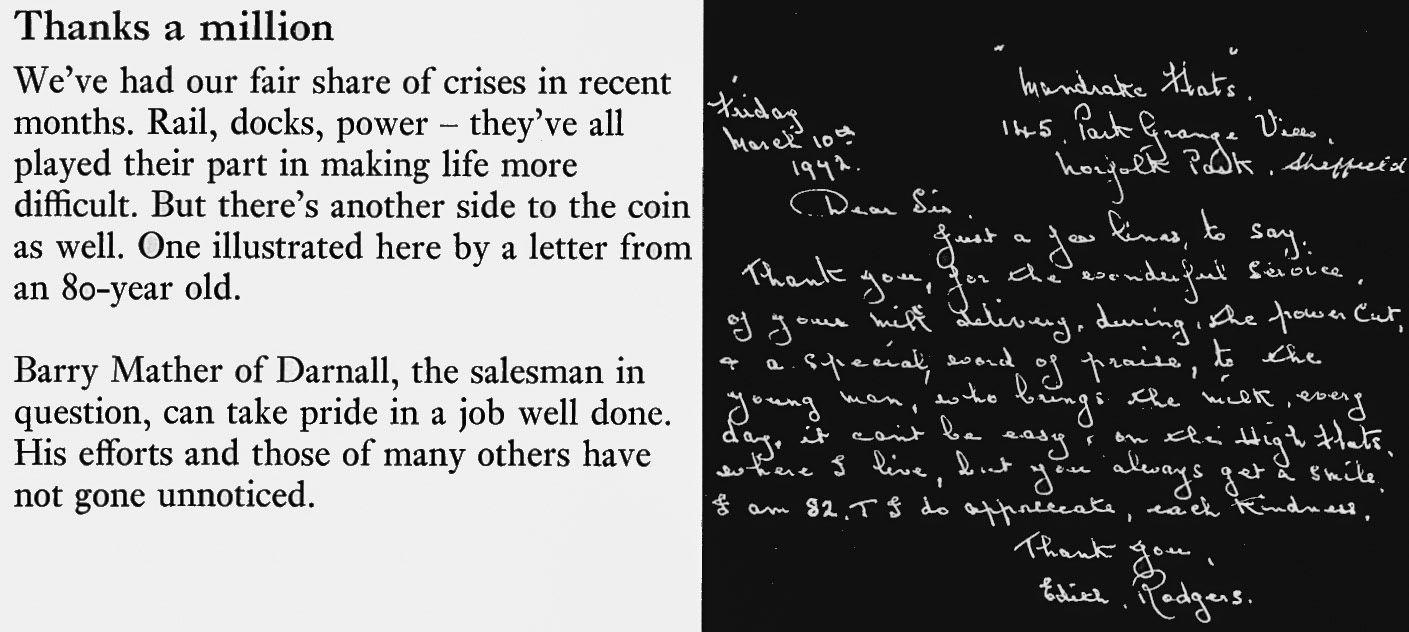 Thanks a million
We've had our fair share of crises in recent
months. Rail, docks, power – they've all
played their part in making life more
difficult. But there's another side to the coin
as well. One illustrated here by a letter from
an 80-year old.
Barry Mather of Darnall, the salesman in
question, can take pride in a job well done.
His efforts and those of many others have
not gone unnoticed.
"Mandrake Flats".
145, Park Grange View,
Norfolk Park, Sheffield
Friday
March 10th
1972.
Dear Sir,
Just a few lines, to say,
Thank you, for the wonderful service,
of your milk delivery, during, the power cut,
& a special, word of praise, to the
young man, who brings the milk, every
day, it can't be easy, on the High Flats,
where I live, but you always get a smile,
I am 82. & I do appreceate, each kindness,
Thank you,
Edith, Rodgers.